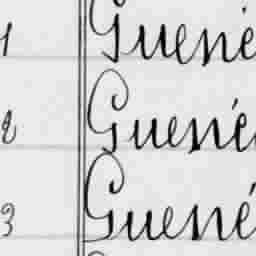 1 Guené
2 Guené
3 Guené